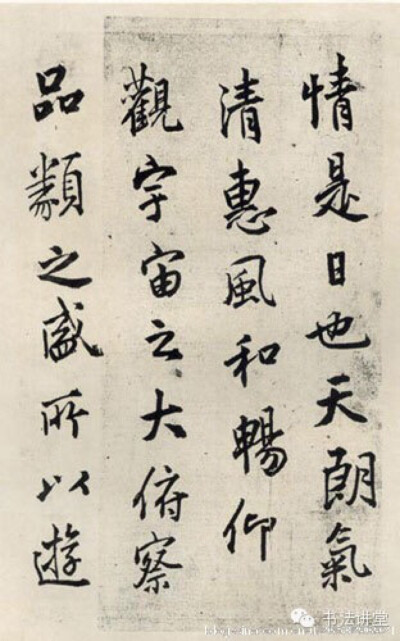 情是日也天朗氣
清惠風和暢仰
觀宇宙之大俯察
品類之盛所以遊
书法讲堂